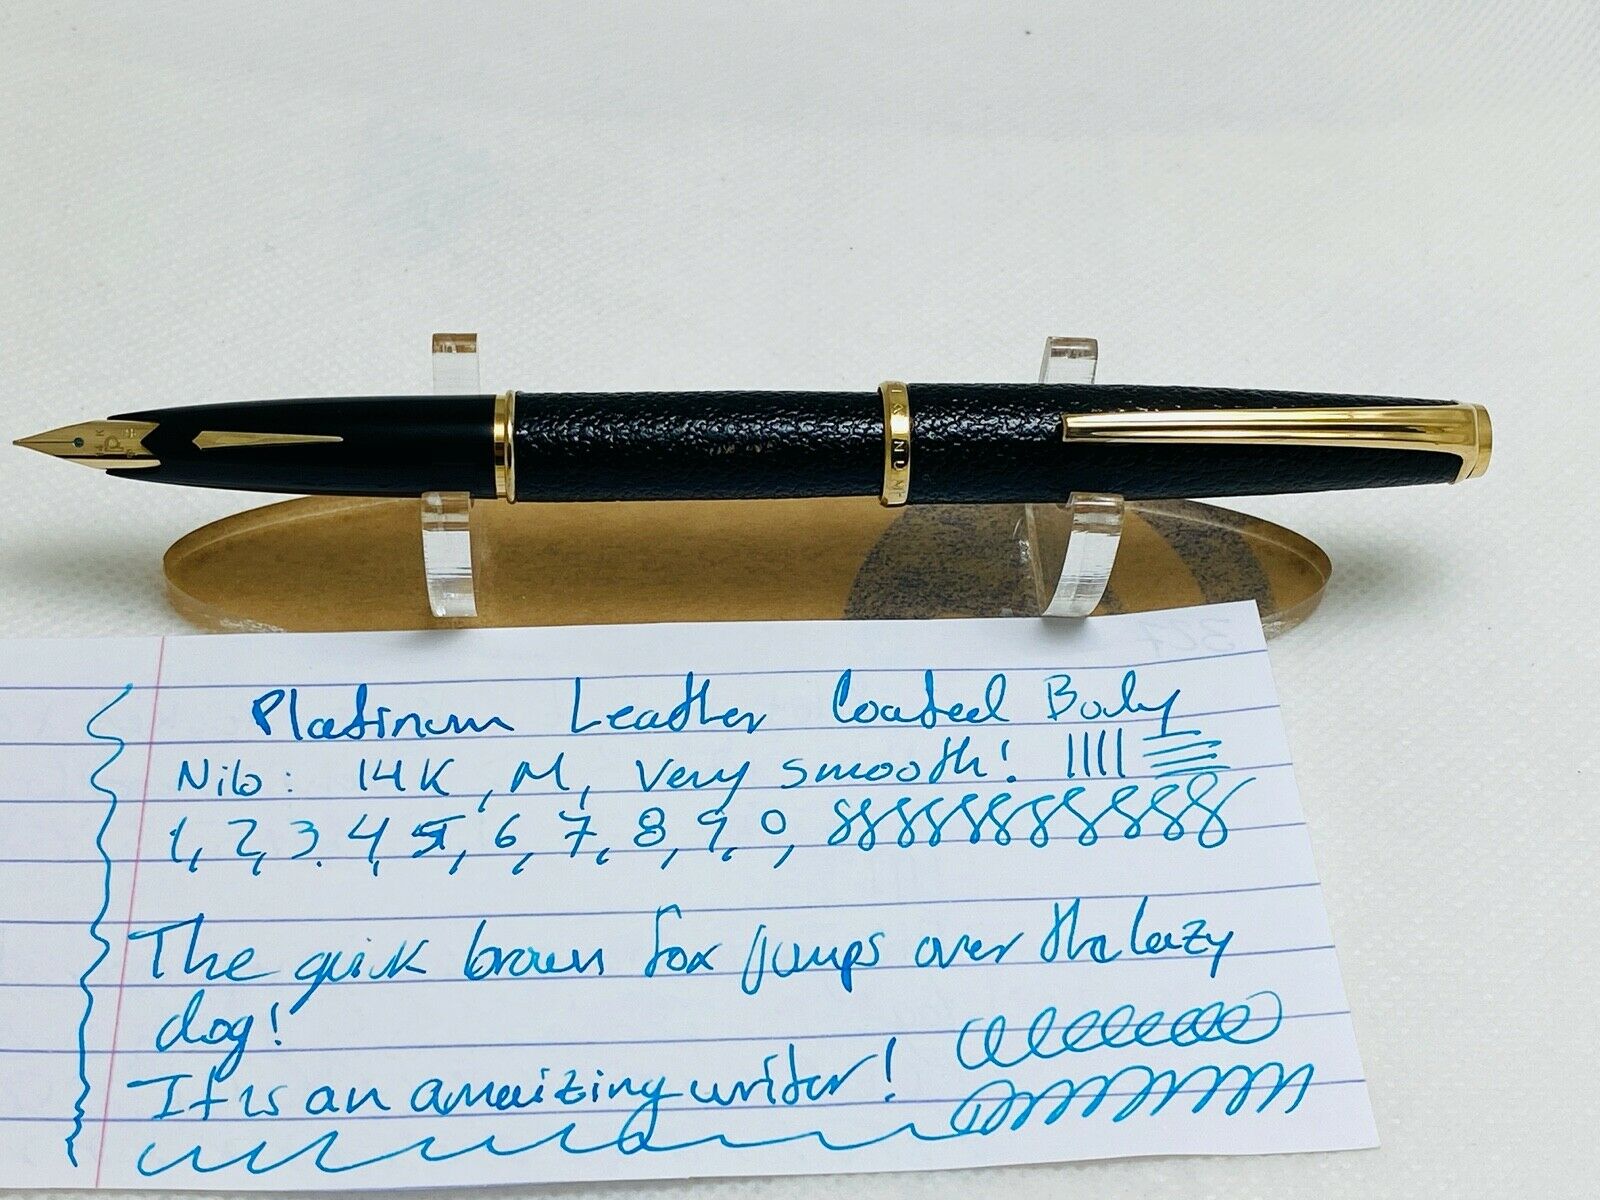 Platinum Leather Coated Body
Nib: 14K, M, Very smooth!
1, 2, 3. 4, 5, 6, 7, 8, 9, 0, 888888888888
The quick brown fox jumps over the lazy
dog!
It is an amaizing writer!